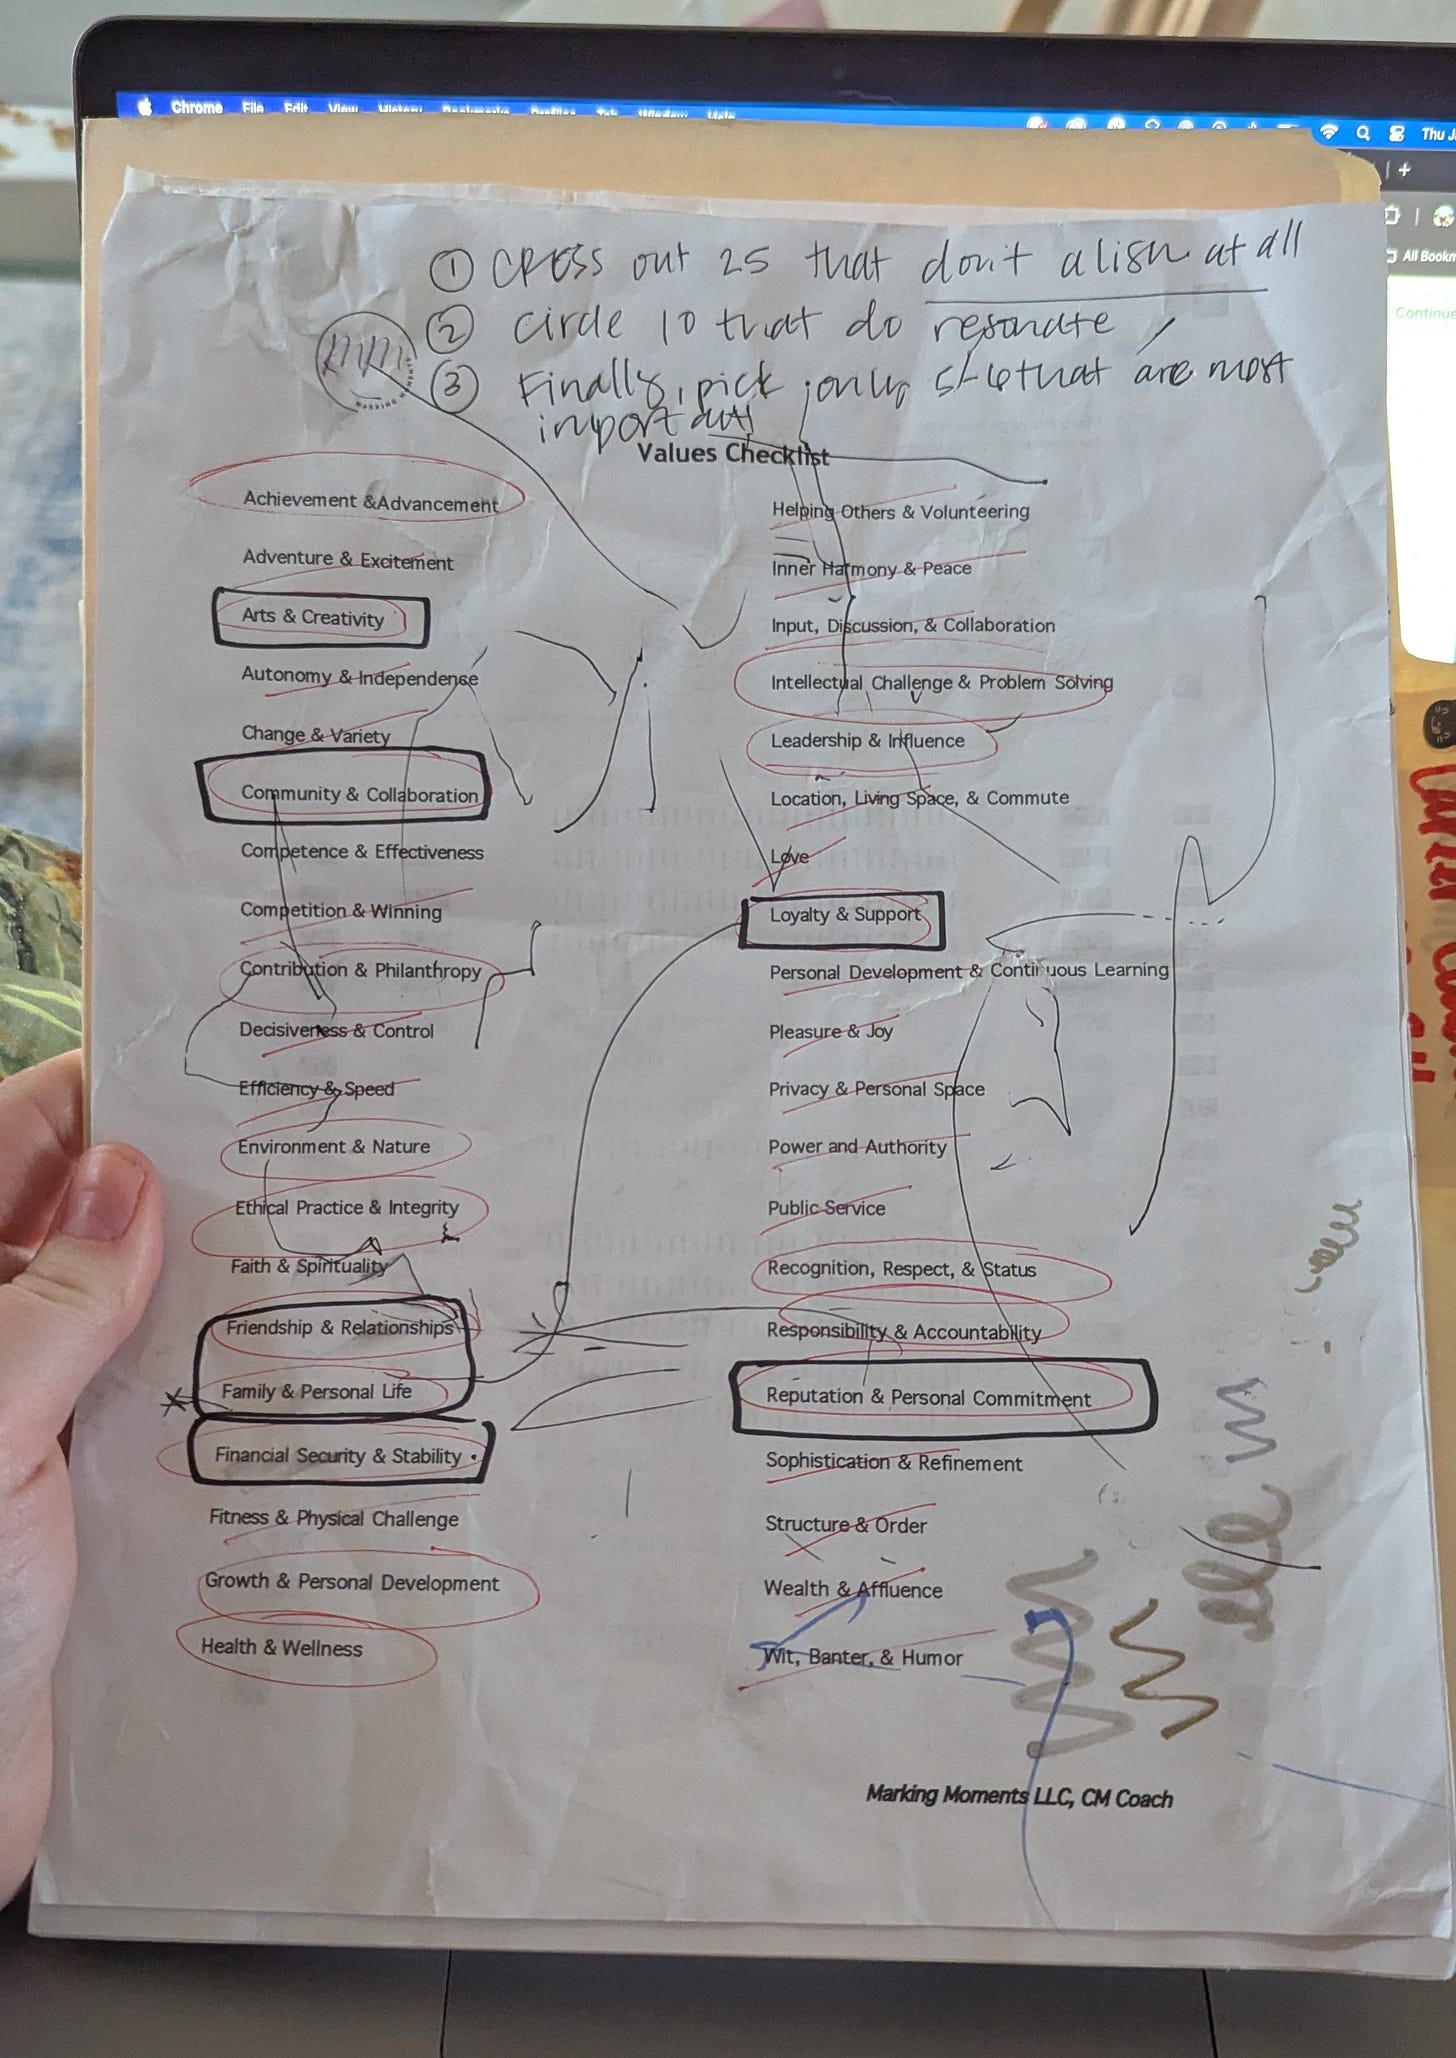 Chrome File Edit View History Bookmarks Profiles Tab Window Help
Thu
All Bookm
Continue
① CROSS out 25 that don't align at all
② circle 10 that do resonate
③ Finally, pick only 5-6 that are most
important!
mm
Values Checklist
Achievement &Advancement
Adventure & Excitement
Arts & Creativity
Autonomy & Independence
Change & Variety
Community & Collaboration
Competence & Effectiveness
Competition & Winning
Contribution & Philanthropy
Decisiveness & Control
Efficiency & Speed
Environment & Nature
Ethical Practice & Integrity
Faith & Spirituality
Friendship & Relationships
Family & Personal Life
Financial Security & Stability
Fitness & Physical Challenge
Growth & Personal Development
Health & Wellness
Helping Others & Volunteering
Inner Harmony & Peace
Input, Discussion, & Collaboration
Intellectual Challenge & Problem Solving
Leadership & Influence
Location, Living Space, & Commute
Love
Loyalty & Support
Personal Development & Continuous Learning
Pleasure & Joy
Privacy & Personal Space
Power and Authority
Public Service
Recognition, Respect, & Status
Responsibility & Accountability
Reputation & Personal Commitment
Sophistication & Refinement
Structure & Order
Wealth & Affluence
Wit, Banter, & Humor
Marking Moments LLC, CM Coach